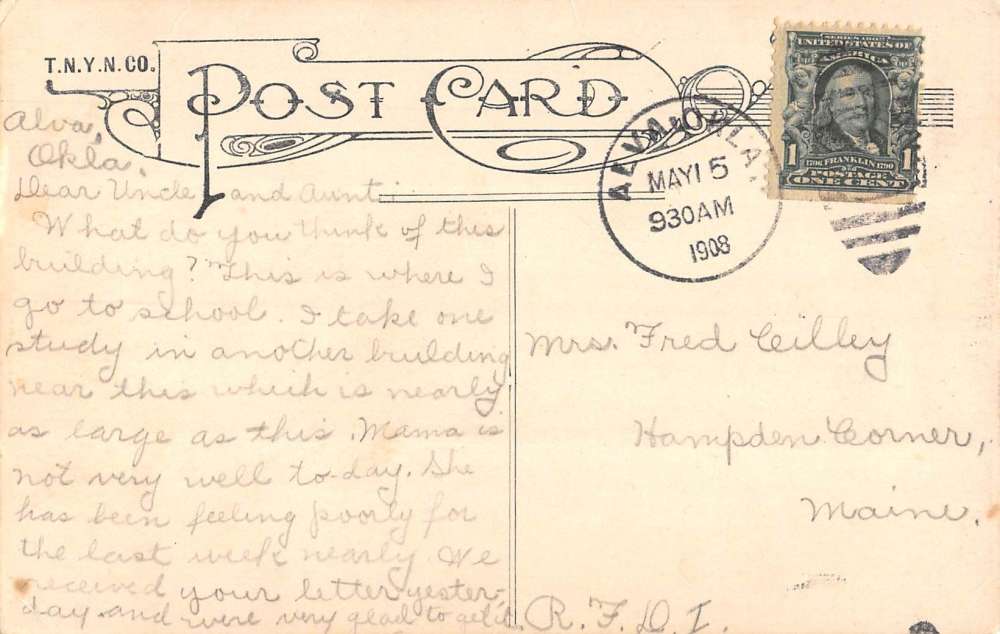 T.N.Y.N.CO.
POST CARD
SERIES 1902
UNITED STATES OF
AMERICA
1 1796 FRANKLIN 1790 1
POSTAGE
ONE CENT
ALVA, OKLA.
MAY 15
930AM
1908
Alva,
Okla.
Dear Uncle and Aunt:
What do you think of this
building? This is where I
go to school. I take one
study in another building
near this which is nearly
as large as this. Mama is
not very well to-day. She
has been feeling poorly for
the last week nearly. We
received your letter yester-
day and were very glad to get it.
Mrs. Fred Cilley
Hampden Corner,
Maine.
R.F.D. I.